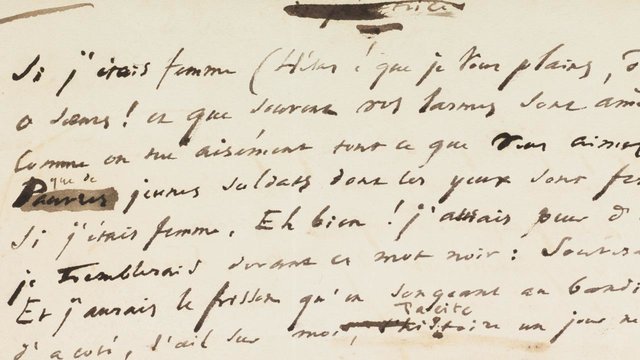 Si j'étais femme (Hélas ! que je vous plains, ô
ô sœurs ! et que souvent vos larmes sont amè
Comme on tue aisément tout ce que vous aimez
que de
Pauvres jeunes soldats dont les yeux sont fer
Si j'étais femme, Eh bien ! j'aurais peur d
je tremblerais devant ce mot noir : Souvera
Et j'aurais le frisson qu'en songeant au bandi
Tacite
d'à coté, l'œil sur moi, l'histoire un jour me